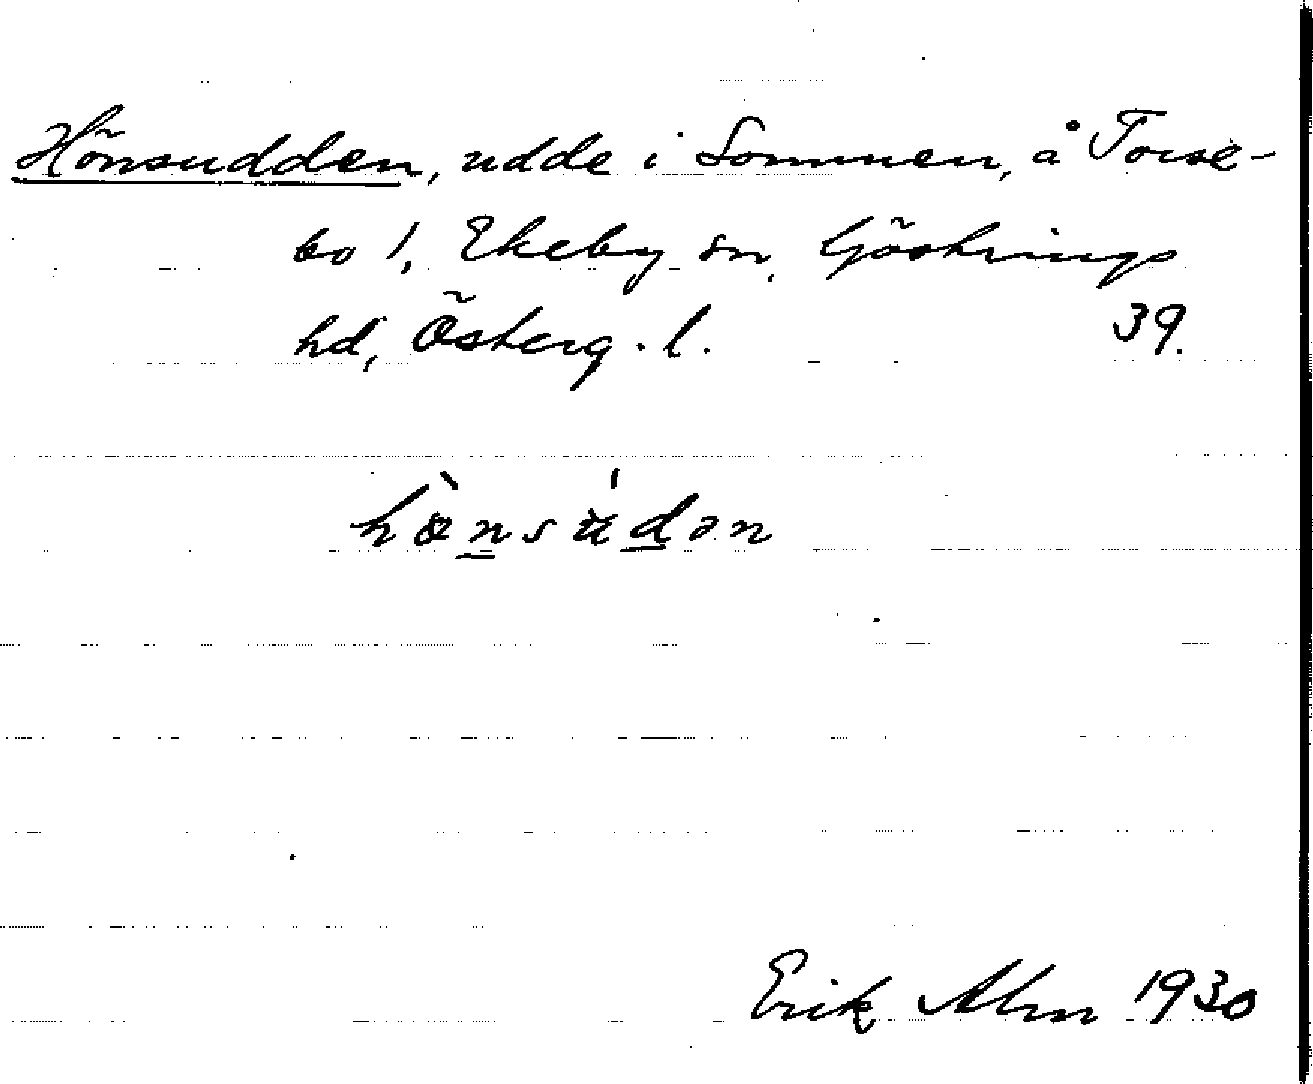 Hönsudden, udde i Sommen, å Torse-
bo 1, Ekeby sn, Göstrings
hd, Österg. l. 39.
hö̀nsúdən
Erik Alm 1930